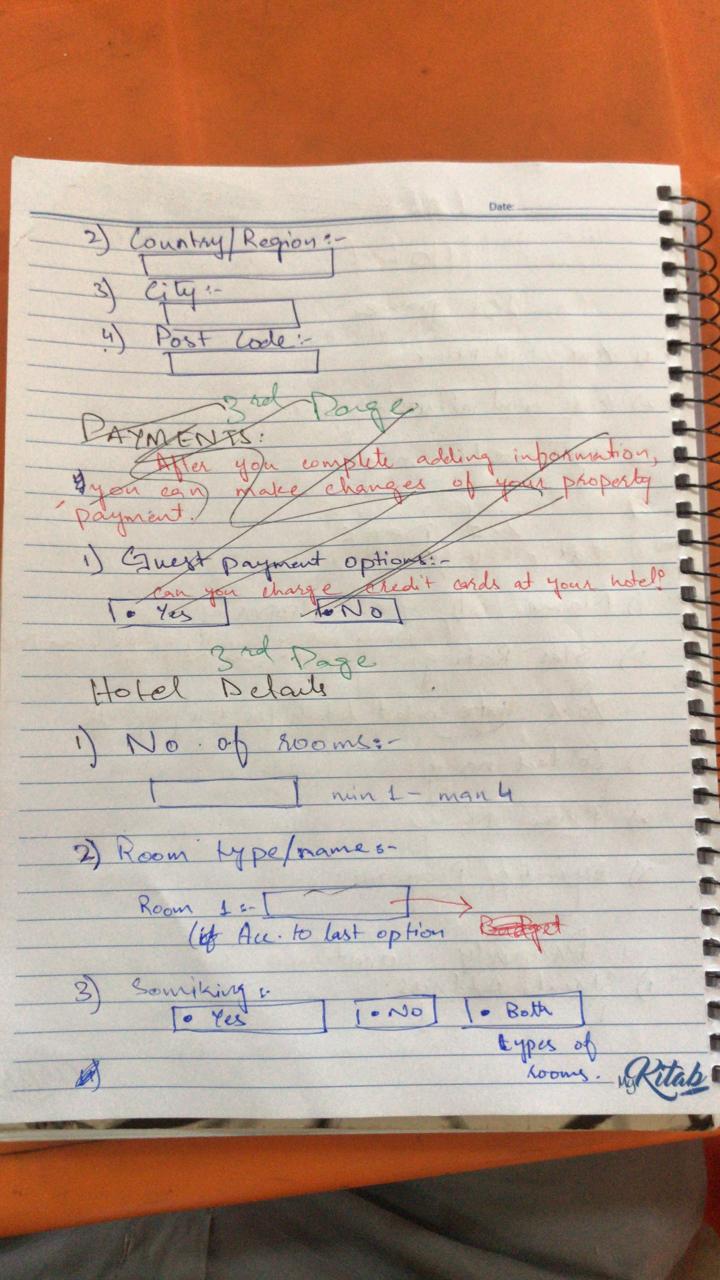 Date:
2) Country/Region:-
3) City:-
4) Post Code:-
3rd Page
PAYMENTS:
After you complete adding information,
you can make changes of your property
payment.
1) Guest payment options:-
Can you charge credit cards at your hotel?
• Yes • No
3rd Page
Hotel Details
1) No. of rooms:-
min 1 - man 4
2) Room type/name:-
Room 1:-
(if Acc. to last option Budget
3) Somiking:-
• Yes • No • Both
types of
rooms.
My Kitab